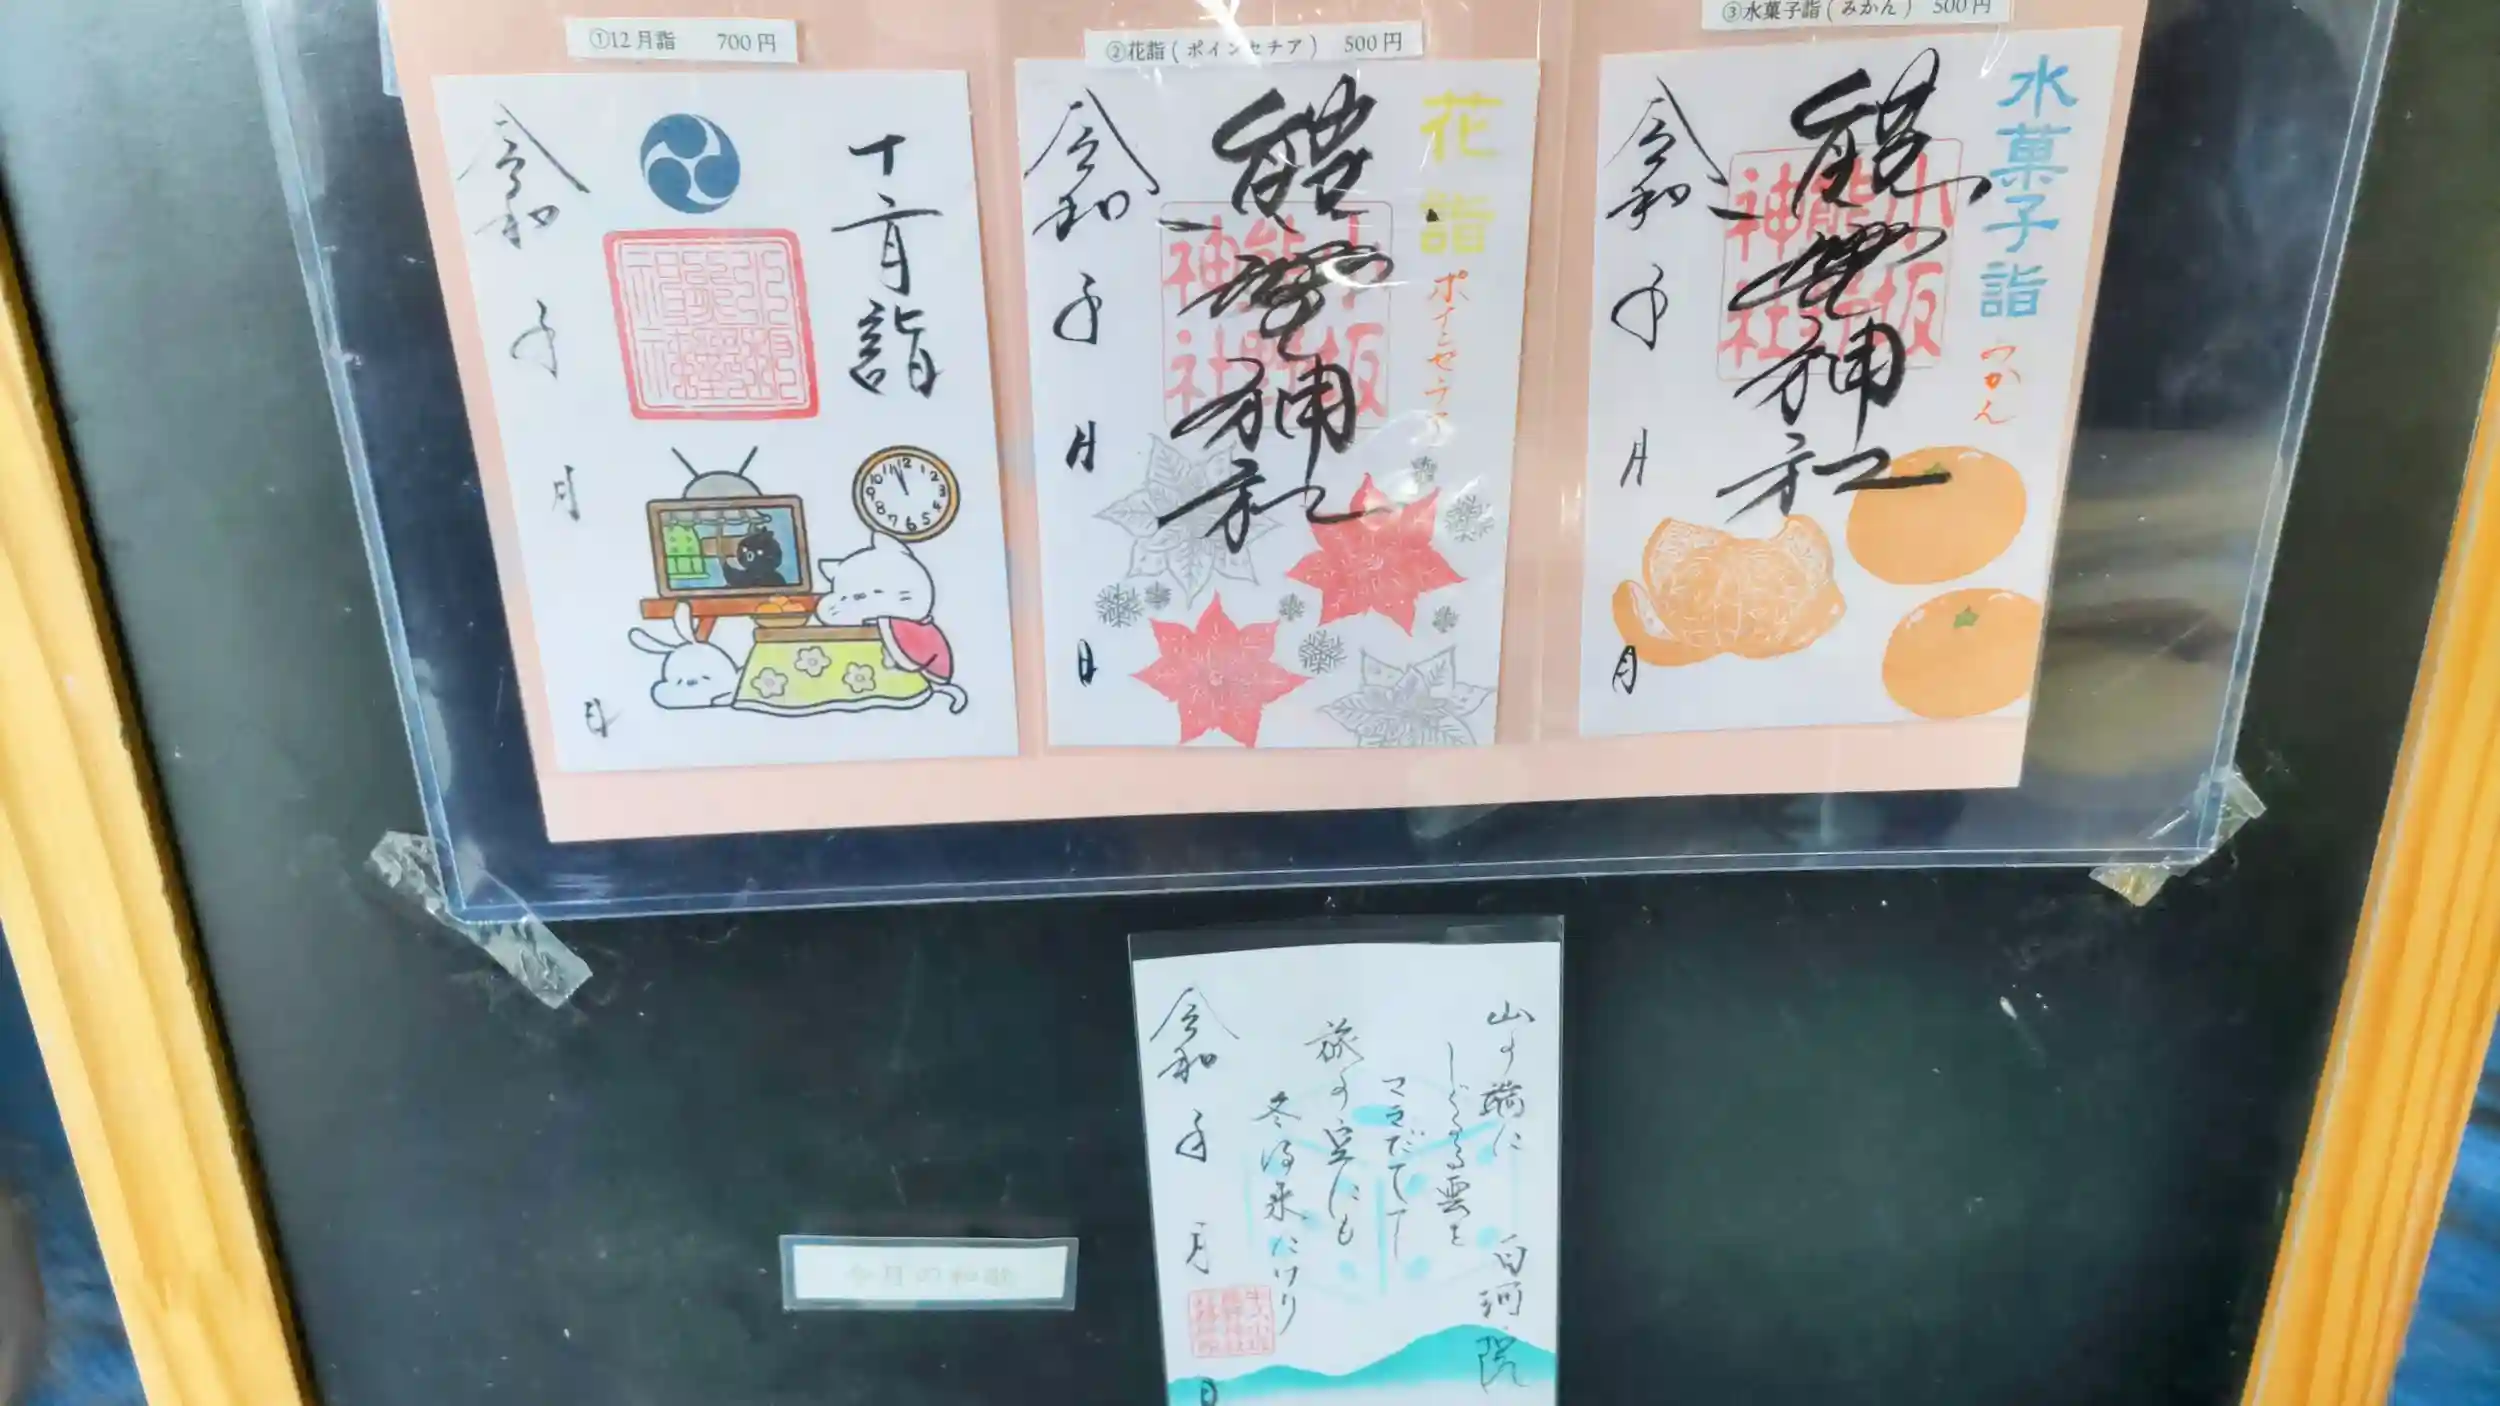 ①12月詣 700円
②花詣(ポインセチア) 500円
③水菓子詣(みかん) 500円
十二月詣
令和 年 月 日
10 11 12 1 2 3 4 5 6 7 8 9
花詣
ポインセチア
熊野神社
小坂
熊野
神社
令和 年 月 日
水菓子詣
みかん
熊野神社
小坂
熊野
神社
令和 年 月 日
山の端に 白河院
しぐるる雲を
さきだてて
旅の空にも
冬は来にけり
令和 年 月 日
今月の和歌